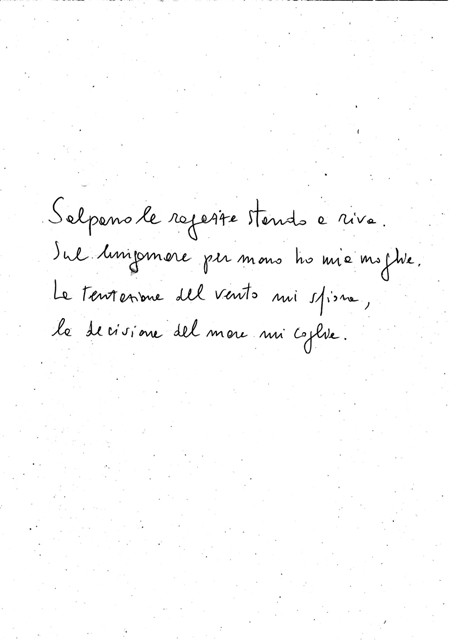 Salpano le ragazze stando a riva.
Sul lungomare per mano ho mia moglie.
La tentazione del vento mi sfiora,
la decisione del mare mi coglie.